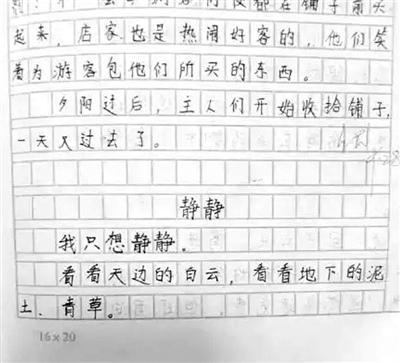 都在铺子前大
起来，店家也是热闹好客的，他们笑
着为游客包他们所买的东西。
夕阳过后，主人们开始收拾铺子，
一天又过去了。
4.28
静静
我只想静静。
看看天边的白云，看看地下的泥
土、青草。
16×20